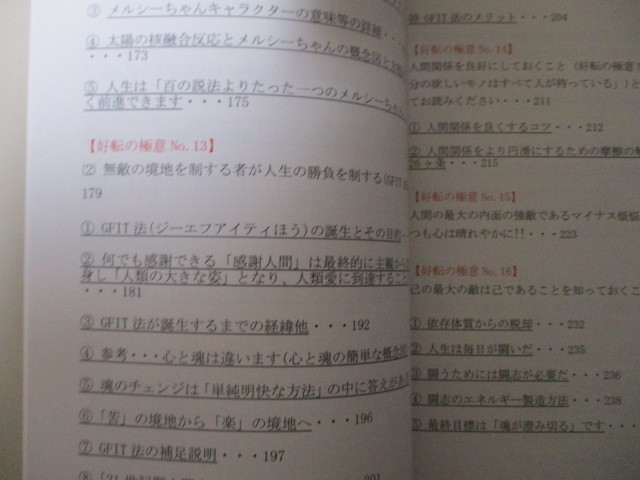 ③ メルシーちゃんキャラクターの意味等の詳細・・・
④ 太陽の核融合反応とメルシーちゃんの概念図と
・・・173
⑤ 人生は「百の説法よりたった一つのメルシーちゃん
く前進できます・・・175
【好転の極意 No.13】
⑵ 無敵の境地を制する者が人生の勝負を制する(GFIT
179
① GFIT 法(ジーエフアイティほう)の誕生とその目的
② 何でも感謝できる「感謝人間」は最終的に主観から
身し「人類の大きな姿」となり、人類愛に到達すること
・・・181
③ GFIT 法が誕生するまでの経緯他・・・192
④ 参考・・・心と魂は違います(心と魂の簡単な概念図
⑤ 魂のチェンジは「単純明快な方法」の中に答えがある
⑥「苦」の境地から「楽」の境地へ・・・196
⑦ GFIT 法の補足説明・・・197
201
GFIT 法のメリット・・・204
【好転の極意 No.14】
人間関係を良好にしておくこと(好転の極意
分の欲しいモノはすべて人が持っている」)と
てお読みください・・・211
① 人間関係を良くするコツ・・・212
② 人間関係をより円滑にするための
26ヶ条・・・215
【好転の極意 No.15】
人間の最大の内面の強敵であるマイナス煩悩
つも心は晴れやかに!!・・・223
【好転の極意 No.16】
己の最大の敵は己であることを知っておくこ
① 依存体質からの脱却・・・232
② 人生は毎日が闘いだ・・・235
③ 闘うためには闘志が必要だ・・・236
④ 闘志のエネルギー製造方法・・・238
⑤ 最終目標は「魂が澄み切る」です・・・